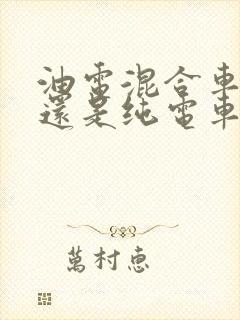 油電混合車
還是純電車
萬村惠